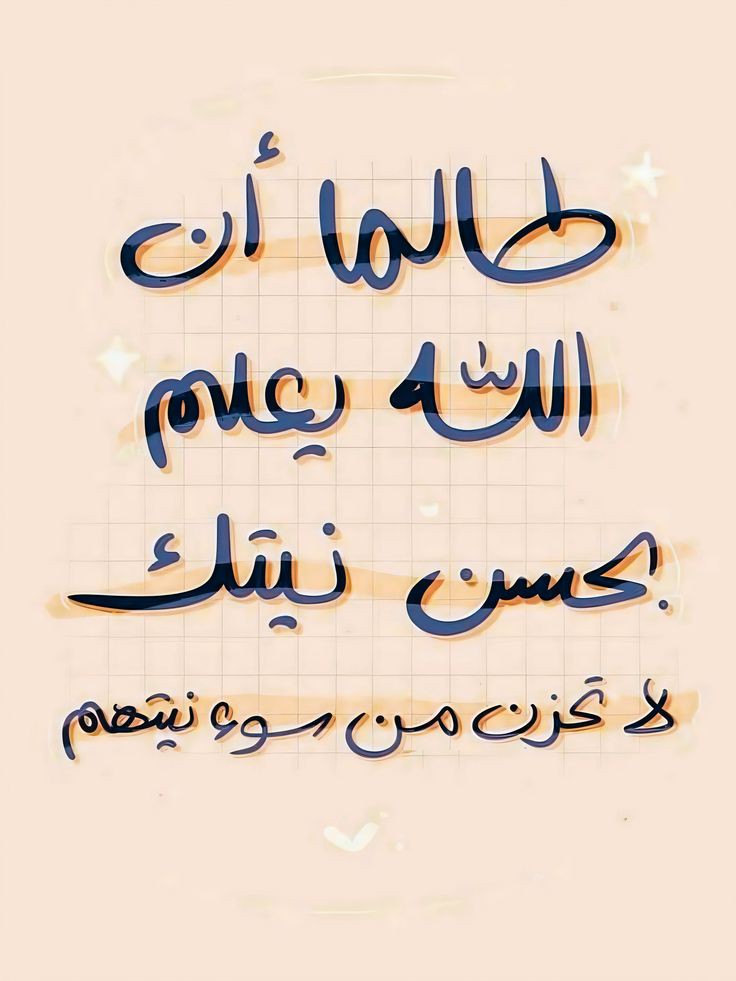 طالما أن
الله يعلم
بحسن نيتك
لا تحزن من سوء نيتهم